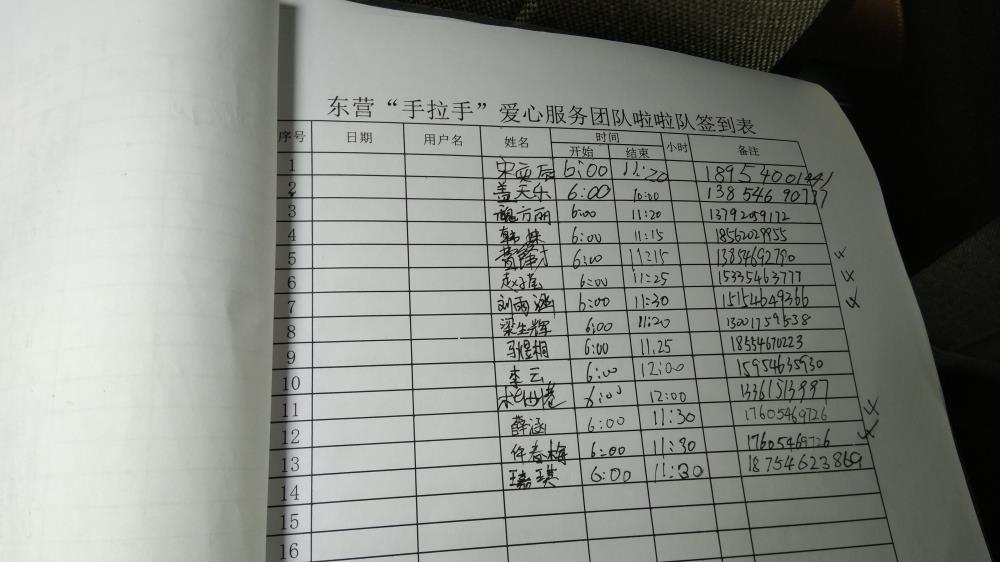 东营“手拉手”爱心服务团队啦啦队签到表
序号 日期 用户名 姓名 时间 小时 备注
开始 结束
1 6:00 11:20
2 盖天乐 6:00 10:00 13854690777
3 魏方丽 6:00 11:20 13792059172
4 韩姝 6:00 11:15 18562029955
5 6:00 11:15 13854692790
6 6:00 11:25 15335463777
7 刘雨涵 6:00 11:30 15154649366
8 梁生辉 6:00 11:20 13001759538
9 马煜桐 6:00 11.25 18554670223
10 李云 6:00 12:00 15954635930
11 6:00 12:00 13361513997
12 薛涵 6:00 11:30 17605469726
13 仵春梅 6:00 11:30 17605469726
14 6:00 11:30 18754623869
15
16